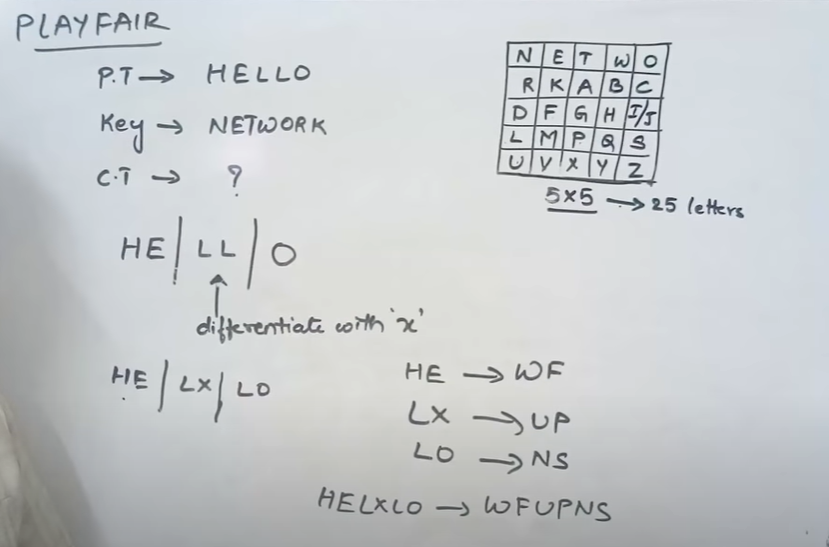 PLAYFAIR
P.T → HELLO
Key → NETWORK
C.T → ?
N E T W O
R K A B C
D F G H I/J
L M P Q S
U V X Y Z
5x5 → 25 letters
HE | LL | O
differentiate with 'x'
HE | LX | LO
HE → WF
LX → UP
LO → NS
HELXLO → WFUPNS